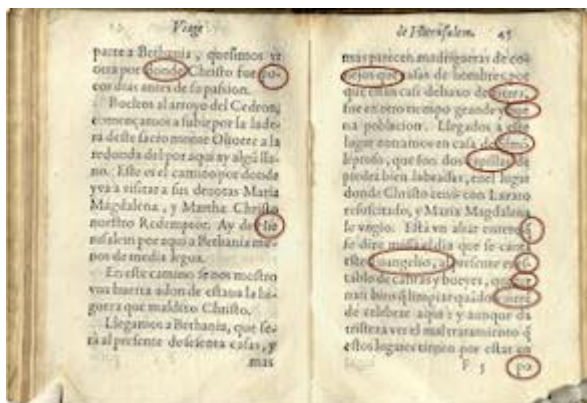 Viage
parte a Bethania, quesimos yr
otra por donde Christo fue po-
cos dias antes de su passion.
Boeltos al arroyo del Cedron,
començamos a subir por la lade-
ra deste sacro monte Oliuete a la
redonda del por aqui ay algū lla-
no. Este es el camino por donde
yva a visitar a sus deuotas Maria
Magdalena, y Martha Christo
nuestro Redemptor. Ay de Hie
rusalem por aqui a Bethania me-
nos de media legua.
En este camino se nos mostro
vna huerta adonde estaua la hi-
guera que maldixo Christo.
Llegamos a Bethania, que se-
rà al presente de sesenta casas, y
mas
de Hierusalem. 45
mas parecen madrigueras de co-
nejos que casas de hombres por
que estan casi debaxo de tierra,
fue en otro tiempo grande y bue
na poblacion. Llegados a este
lugar entramos en casa de Simō
leproso, que son dos capillas de
piedra bien labradas, en el lugar
donde Christo ceno con Lazaro
resuscitado, y Maria Magdalena
le vngio. Està vn altar en
se dize missa el dia que se canta
este Euangelio, al presente es es-
tablo de cabras y bueyes,
bien q̄ limpiar
de celebrar aqui: y aunque da
tristeza ver el mal tratamiento q̄
estos lugares tienen por estar en
F 5 po